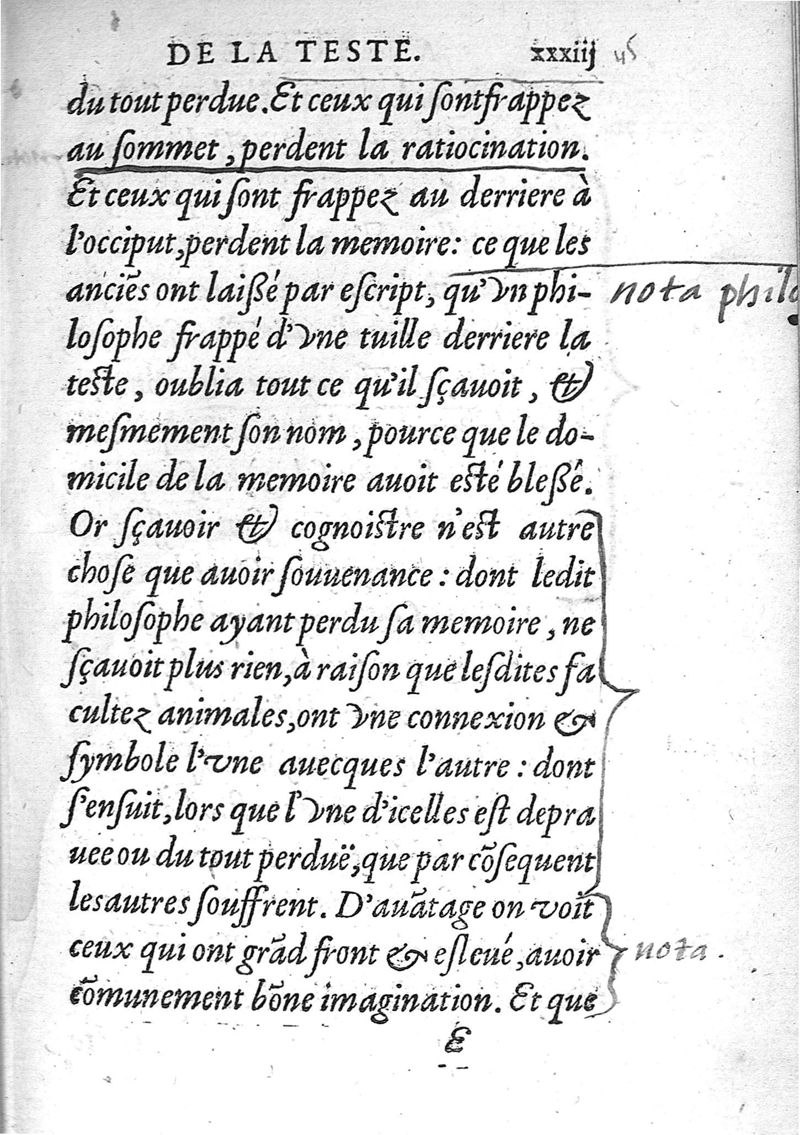 DE LA TESTE. xxxiij 45
du tout perdue. Et ceux qui ſont frappez
au ſommet, perdent la ratiocination.
Et ceux qui ſont frappez au derriere à
l'occiput, perdent la memoire: ce que les
anciẽs ont laiſſé par eſcript, qu'vn phi-
nota philo
loſophe frappé d'vne tuille derriere la
teſte, oublia tout ce qu'il ſçauoit, &
meſmement ſon nom, pource que le do-
micile de la memoire auoit eſté bleſſé.
Or ſçauoir & cognoiſtre n'eſt autre
choſe que auoir ſouuenance: dont ledit
philoſophe ayant perdu ſa memoire, ne
ſçauoit plus rien, à raiſon que leſdites fa
cultez animales, ont vne connexion &
ſymbole l'vne auecques l'autre: dont
s'enſuit, lors que l'vne d'icelles eſt depra
uee ou du tout perduë, que par cõſequent
les autres ſouffrent. D'auãtage on voit
ceux qui ont grãd front & eſleué, auoir
nota.
cõmunement bõne imagination. Et que
E